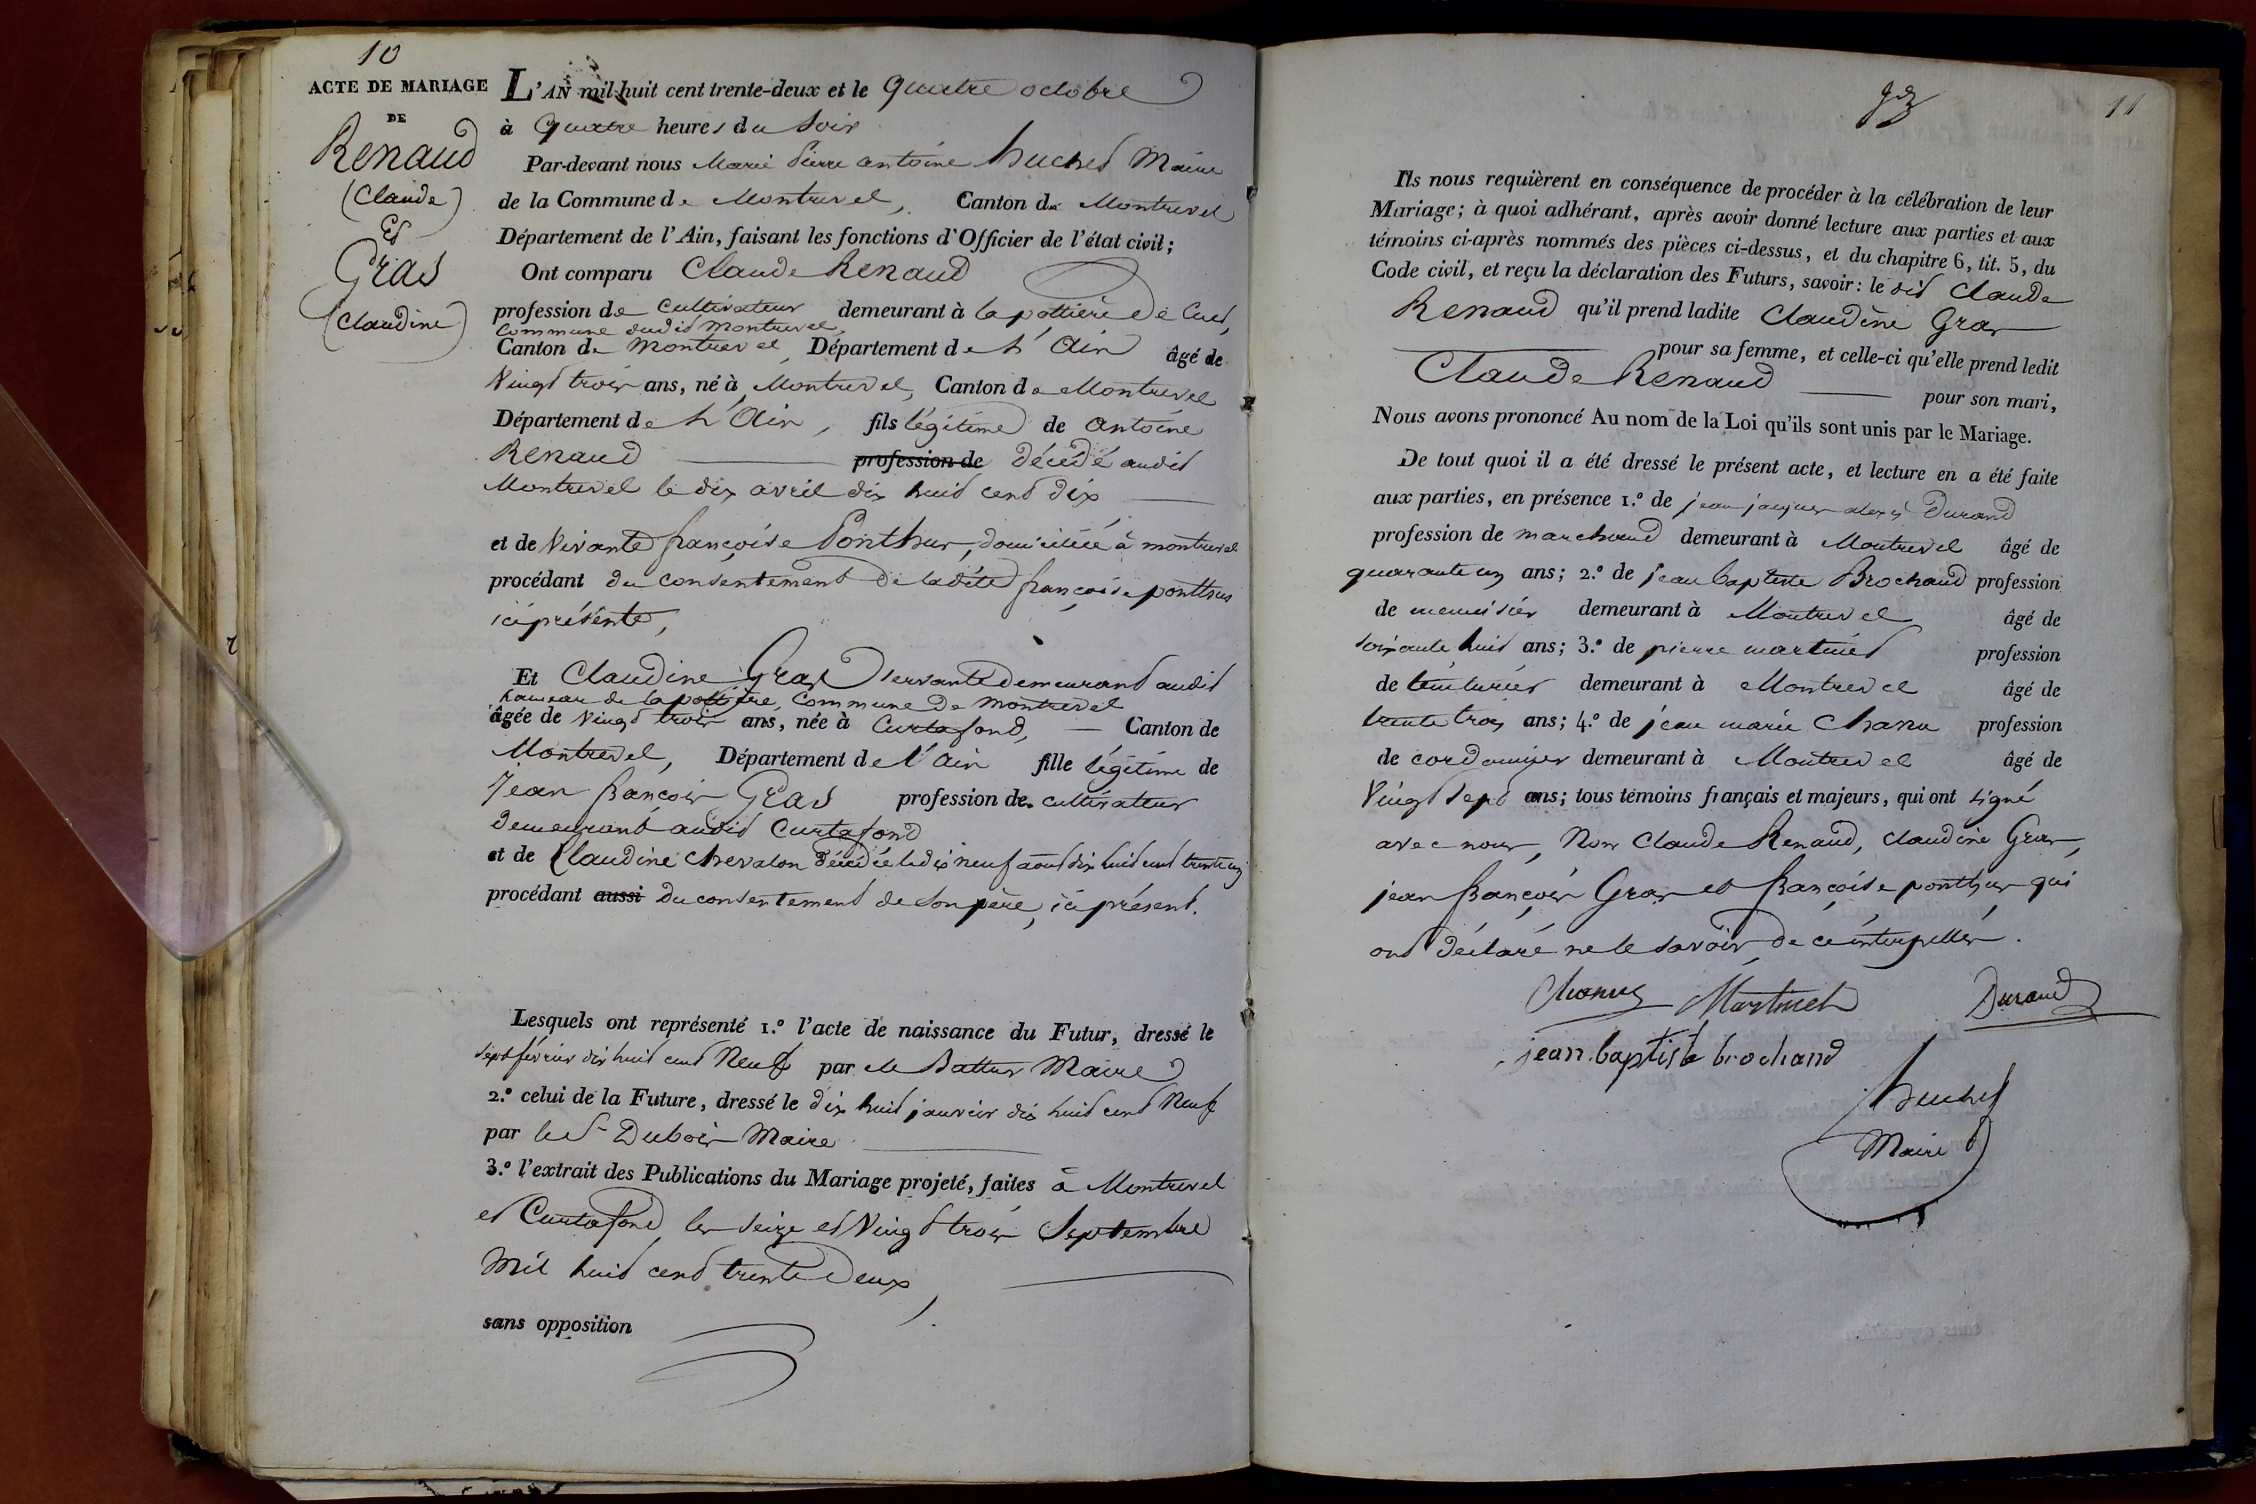 10
ACTE DE MARIAGE
DE
Renaud
(Claude)
Et
Gras
(Claudine)
L'AN mil huit cent trente-deux et le quatre octobre
à quatre heures du soir
Par-devant nous Marie Pierre antoine huchet Maire
de la Commune de Montrevel, Canton de Montrevel
Département de l'Ain, faisant les fonctions d'Officier de l'état civil;
Ont comparu Claude Renaud
profession de cultivateur demeurant à la pottière de Cuet,
commune dudit Montrevel,
Canton de Montrevel, Département de L'Ain âgé de
Vingt trois ans, né à Montrevel, Canton de Montrevel
Département de L'Ain, fils légitime de antoine
Renaud profession de décédé audit
Montrevel le dix avril dix huit cent dix
et de Vivante françoise Ponthus, domiciliée à montrevel
procédant du consentement de ladite françoise ponthus
ici présente,
Et Claudine Gras servante demeurant audit
hameau de la pottière, Commune de Montrevel
âgée de Vingt trois ans, née à Curtafond, Canton de
Montrevel, Département de l'Ain fille légitime de
Jean françois Gras profession de cultivateur
demeurant audit Curtafond
et de Claudine Chevalon décédée le dix neuf août dix huit cent trente un
procédant aussi du consentement de son père, ici présent.
Lesquels ont représenté 1.º l'acte de naissance du Futur, dressé le
sept février dix huit cent Neuf par Maire
2.º celui de la Future, dressé le dix huit janvier dix huit cent Neuf
par le Sr Dubois Maire
3.º l'extrait des Publications du Mariage projeté, faites à Montrevel
et Curtafond les seize et Vingt trois Septembre
Mil huit cent trente Deux,
sans opposition
11
Ils nous requièrent en conséquence de procéder à la célébration de leur
Mariage; à quoi adhérant, après avoir donné lecture aux parties et aux
témoins ci-après nommés des pièces ci-dessus, et du chapitre 6, tit. 5, du
Code civil, et reçu la déclaration des Futurs, savoir: le dit Claude
Renaud qu'il prend ladite Claudine Gras
pour sa femme, et celle-ci qu'elle prend ledit
Claude Renaud pour son mari,
Nous avons prononcé Au nom de la Loi qu'ils sont unis par le Mariage.
De tout quoi il a été dressé le présent acte, et lecture en a été faite
aux parties, en présence 1.º de jean jacques alexis Durand
profession de marchand demeurant à Montrevel âgé de
quarante un ans; 2.º de jean baptiste Brochand profession
de menuisier demeurant à Montrevel âgé de
soixante huit ans; 3.º de pierre martinet profession
de teinturier demeurant à Montrevel âgé de
trente trois ans; 4.º de jean marie Chanu profession
de cordonnier demeurant à Montrevel âgé de
Vingt sept ans; tous témoins français et majeurs, qui ont signé
avec nous, Non Claude Renaud, Claudine Gras,
jean françois Gras et françoise ponthus qui
ont déclaré ne le savoir de ce interpellés.
Martinet Durand
jean baptiste brochand
huchet
Maire